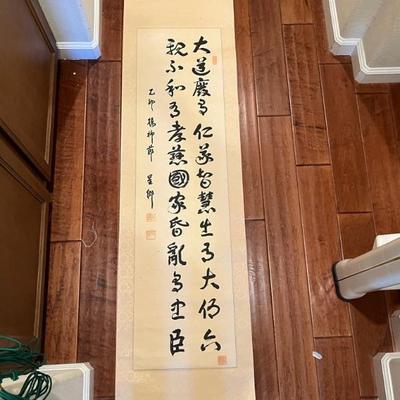 大道廢有仁義智慧生有大偽六
親不和有孝慈國家昏亂有忠臣
乙卯楊柳節